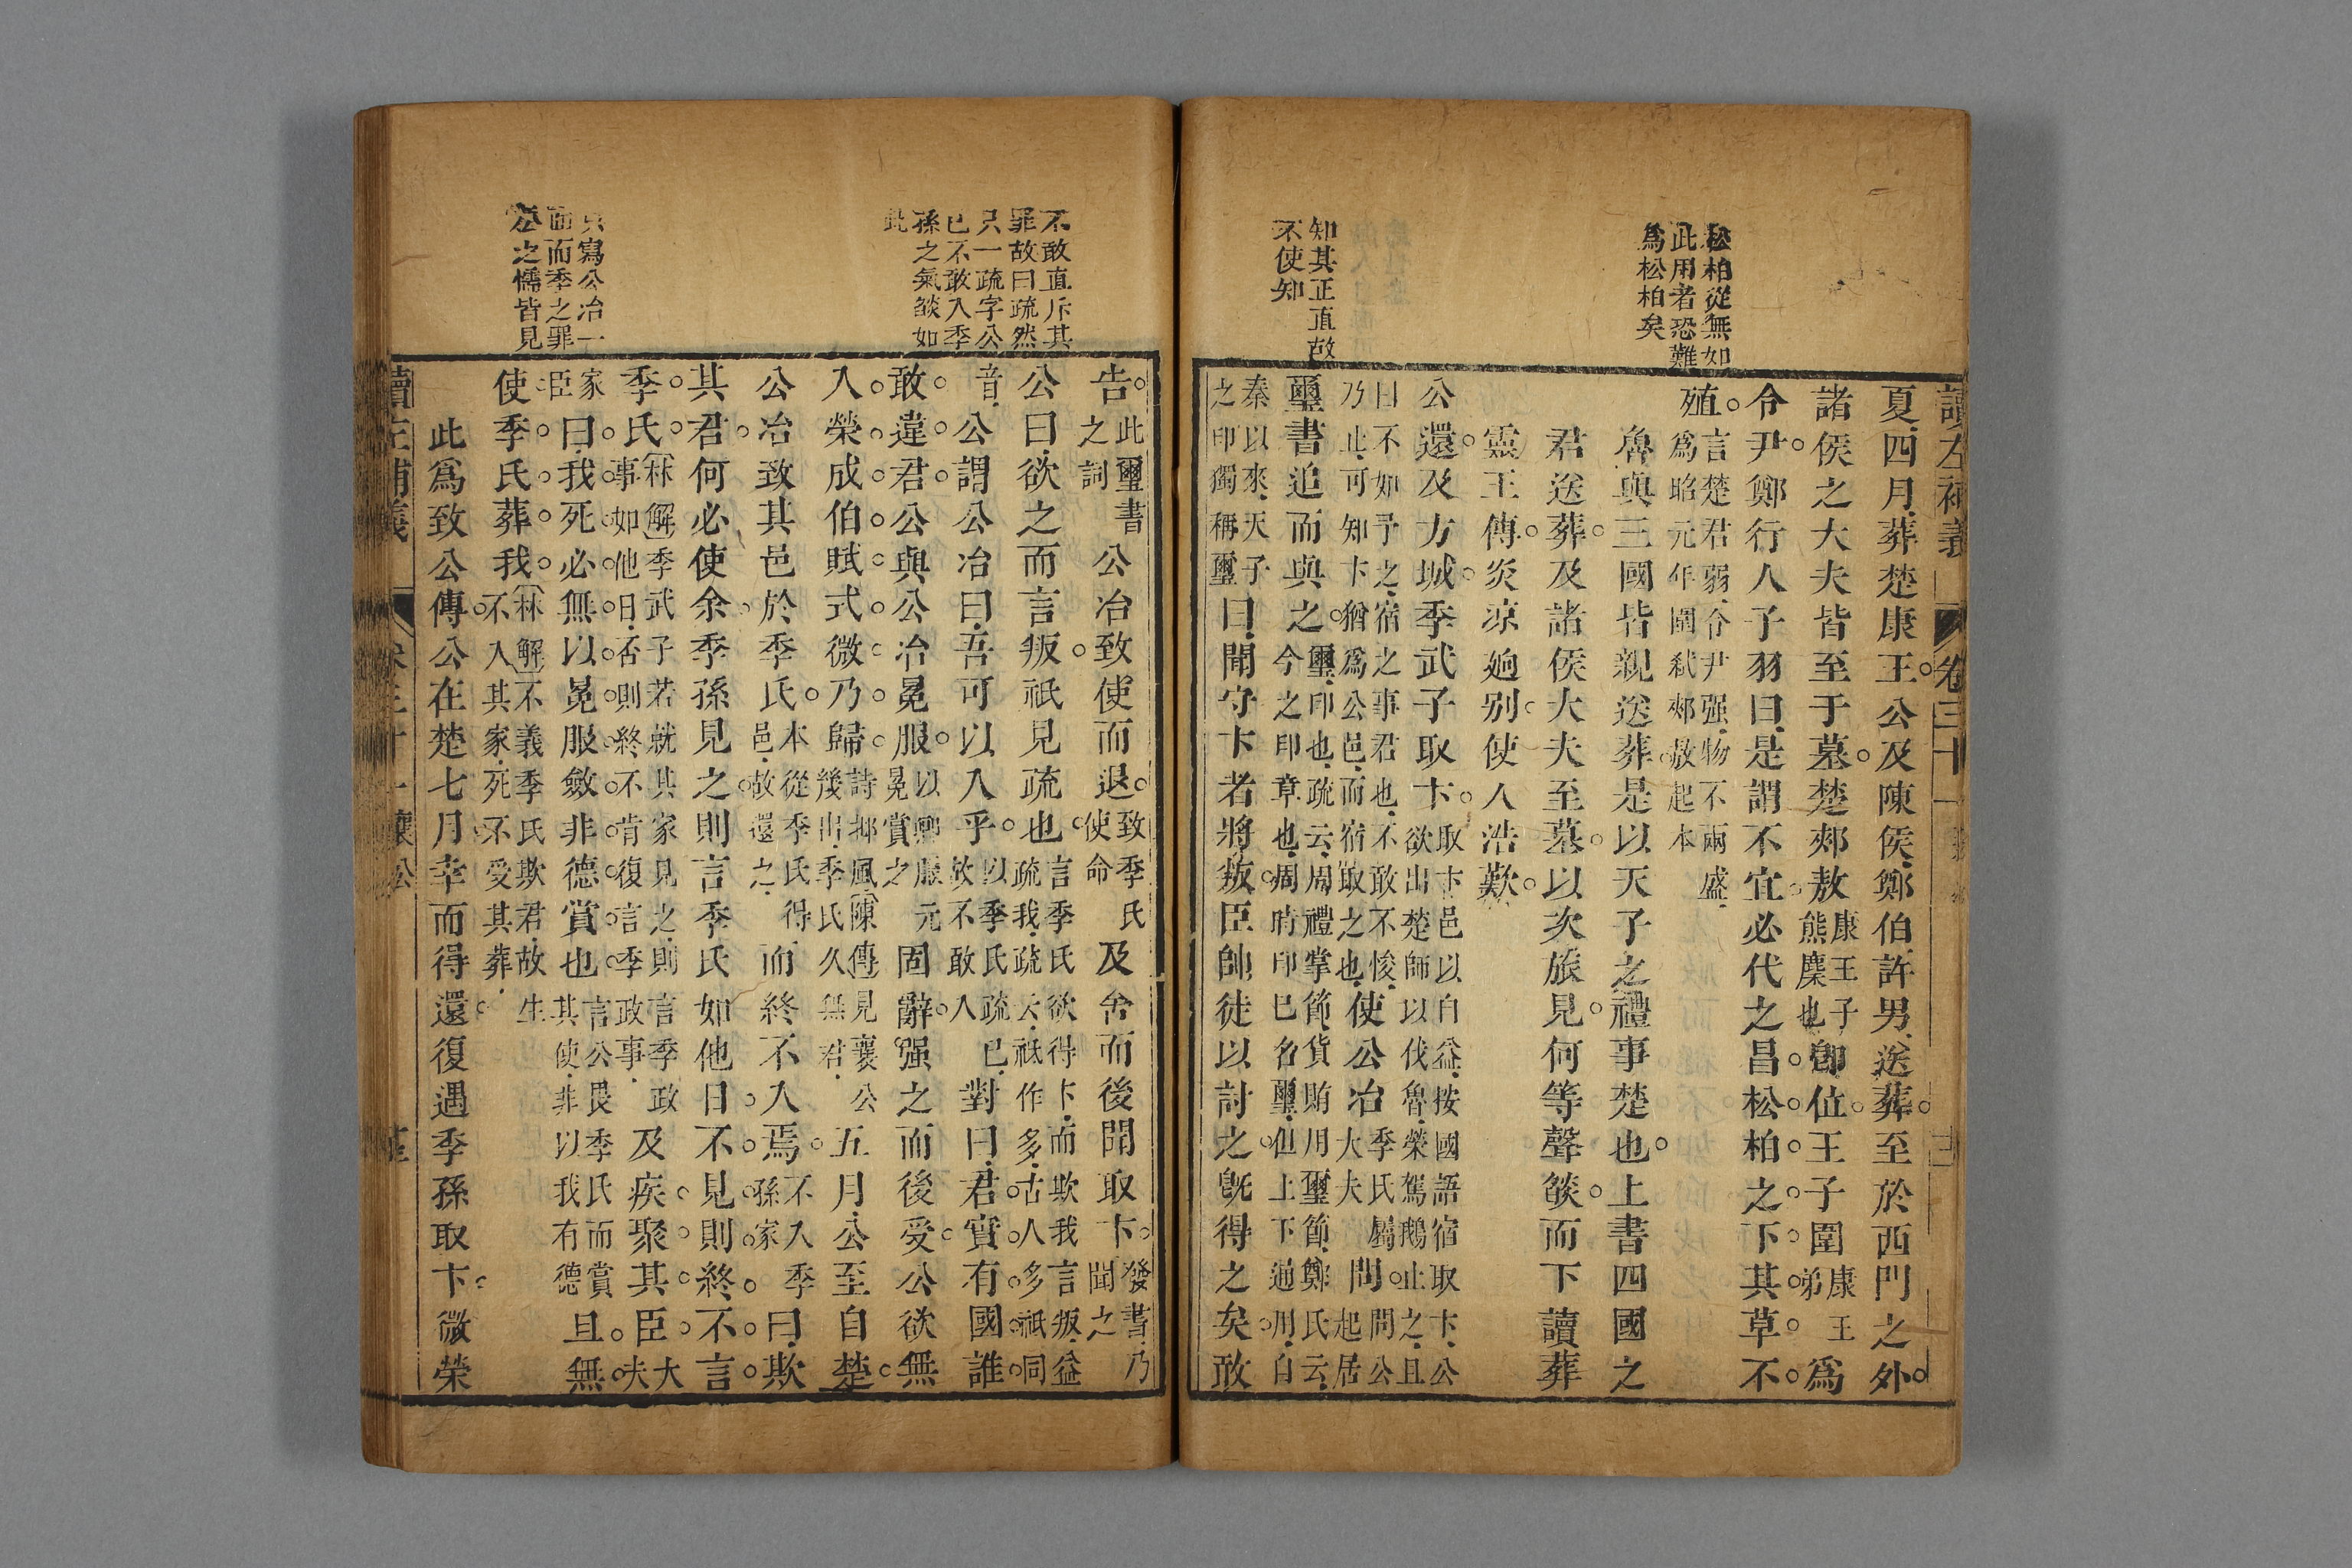 讀左補義
卷三十一
三
松柏從無如
此用者恐難
爲松柏矣
知其正直故
不使知
夏四月葬楚康王公及陳侯鄭伯許男送葬至於西門之外
諸侯之大夫皆至于墓楚郟敖康王子熊麇也卽位王子圍康王弟爲
令尹鄭行人子羽曰是謂不宜必代之昌松柏之下其草不
殖言楚君弱令尹强物不兩盛爲昭元年圍弑郟敖起本
魯與三國皆親送葬是以天子之禮事楚也上書四國之
君送葬及諸侯大夫至墓以次旅見何等聲燄而下讀葬
靈王傳炎凉逈别使人浩歎
公還及方城季武子取卞取卞邑以自益按國語宿取卞公欲出楚師以伐魯榮駕鵝止之且
曰不如予之宿之事君也不敢不悛乃止可知卞猶爲公邑而宿取之也使公冶季氏屬大夫問問公起居
璽書追而與之璽印也疏云周禮掌節貨賄用璽節鄭氏云今之印章也周時印已名璽但上下通用自
秦以來天子之印獨稱璽曰聞守卞者將叛臣帥徒以討之旣得之矣敢
不敢直斥其
罪故曰疏然
只一疏字公
已不敢入季
孫之氣燄如
此
只寫公冶一
面而季之罪
公之懦皆見
告此璽書之詞公冶致使而退致季氏使命及舍而後聞取卞發書乃聞之
公曰欲之而言叛祇見疏也言季氏欲得卞而欺我言叛益疏我疏云祇作多古人多祇同
音公謂公冶曰吾可以入乎以季氏疏已故不敢入對曰君實有國誰
敢違君公與公冶冕服以卿服元冕賞之固辭强之而後受公欲無
入榮成伯賦式微乃歸詩邶風陳傳見襄公幾出季氏久無君五月公至自楚
公冶致其邑於季氏本從季氏得邑故還之而終不入焉不入季孫家曰欺
其君何必使余季孫見之則言季氏如他日不見則終不言
季氏林解季武子若就其家見之則言季政事如他日否則終不肯復言季政事及疾聚其臣大夫
家臣曰我死必無以冕服斂非德賞也言公畏季氏而賞其使非以我有德且無
使季氏葬我林解不義季氏欺君故生不入其家死不受其葬
此爲致公傳公在楚七月幸而得還復遇季孫取卞微榮
讀左補義
卷三十一襄公